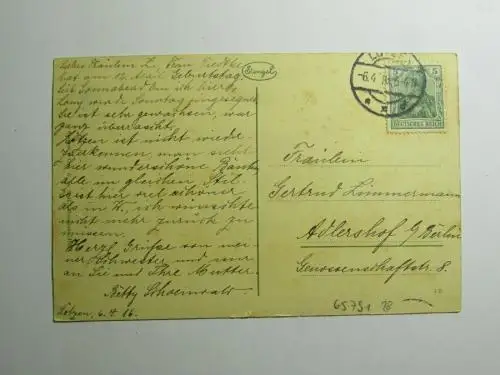 Liebes Fräulein Z., Frau Piedtke
hat am 12. April Geburtstag.
Seit Sonnabend bin ich hier
wird Sonntag eingesegnet.
Sie ist sehr gewachsen, war
ganz überrascht.
Lötzen ist nicht wieder
zu erkennen, man sieht
hier wunderschöne
alle im gleichen Stil.
Es ist hier viel schöner
als in K., ich wünschte
nicht mehr zurück zu
müssen.
Herzl. Grüße von mei-
ner Schwester und mir
an Sie und Ihre Mutter.
Betty Schoenwald.
Lötzen, 6.4.16.
Stengel
LÖTZEN
-6.4.16.
5
DEUTSCHES REICH
Fräulein
Gertrud Zimmermann
Adlershof b/Berlin
Genossenschaftstr. 8.
65791